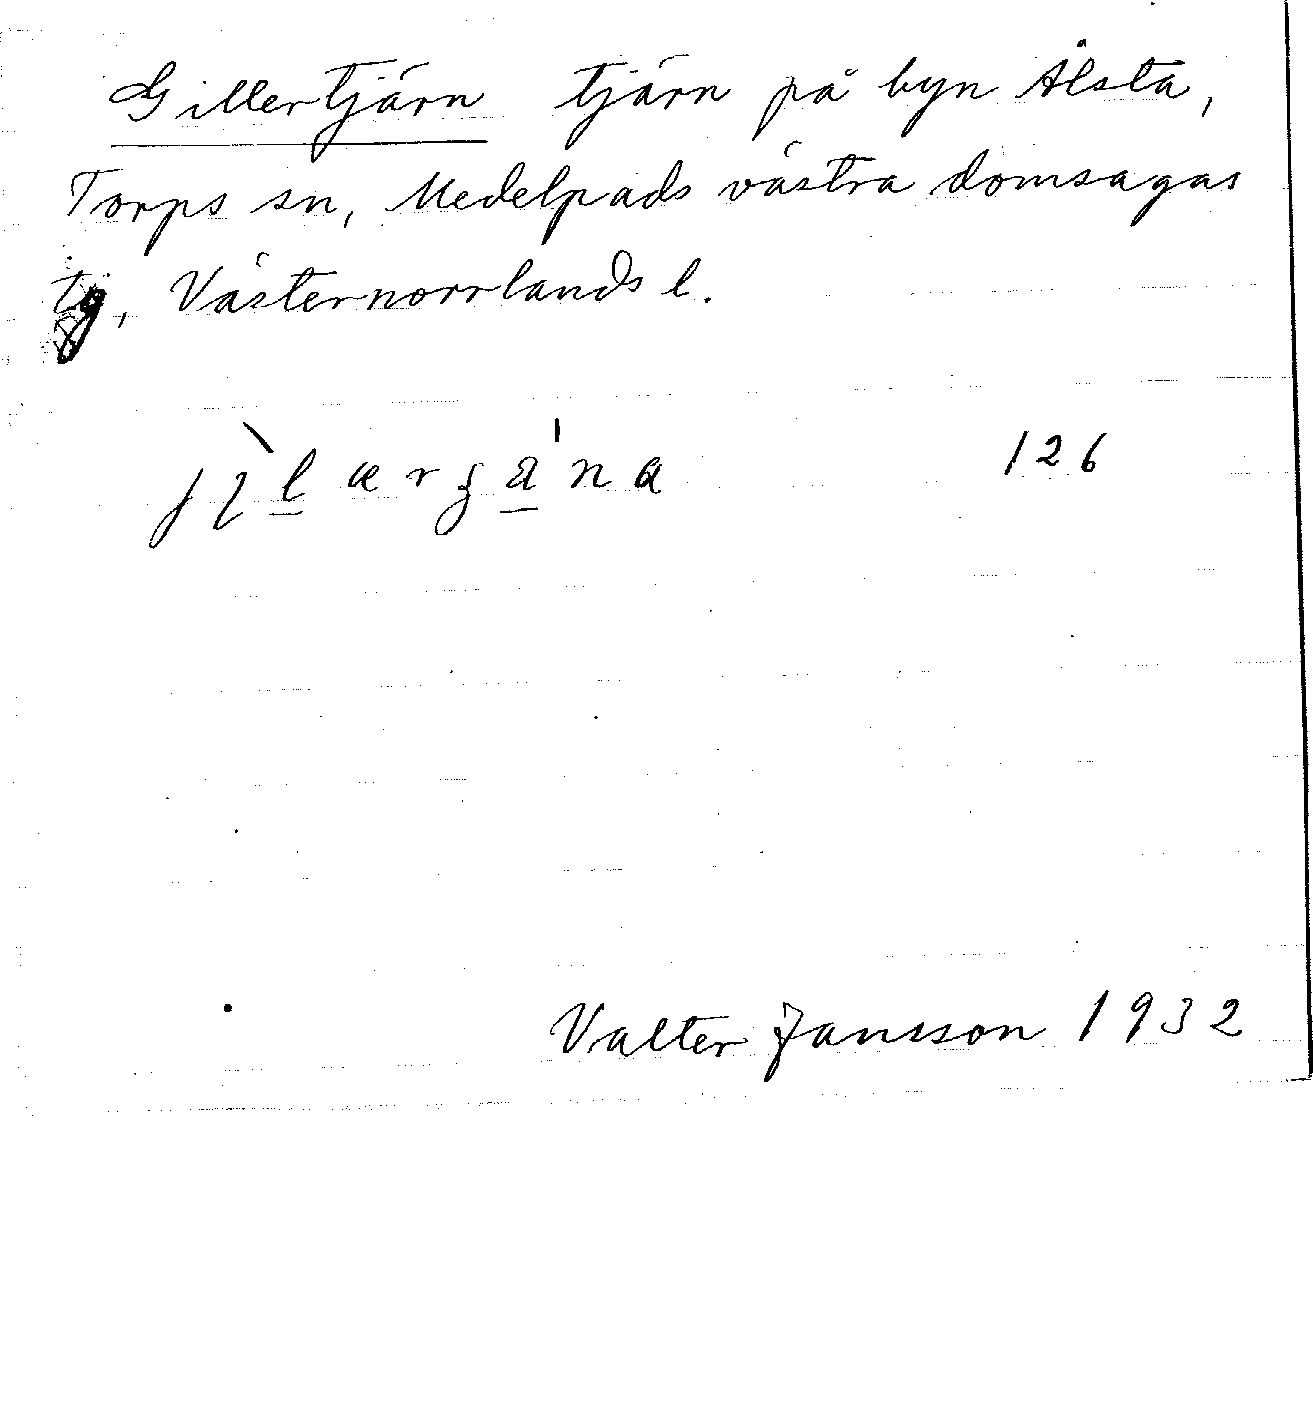 Gillertjärn tjärn på byn Ålsta,
Torps sn, Medelpads västra domsagas
tg, Västernorrlands l.
126
Valter Jansson 1932